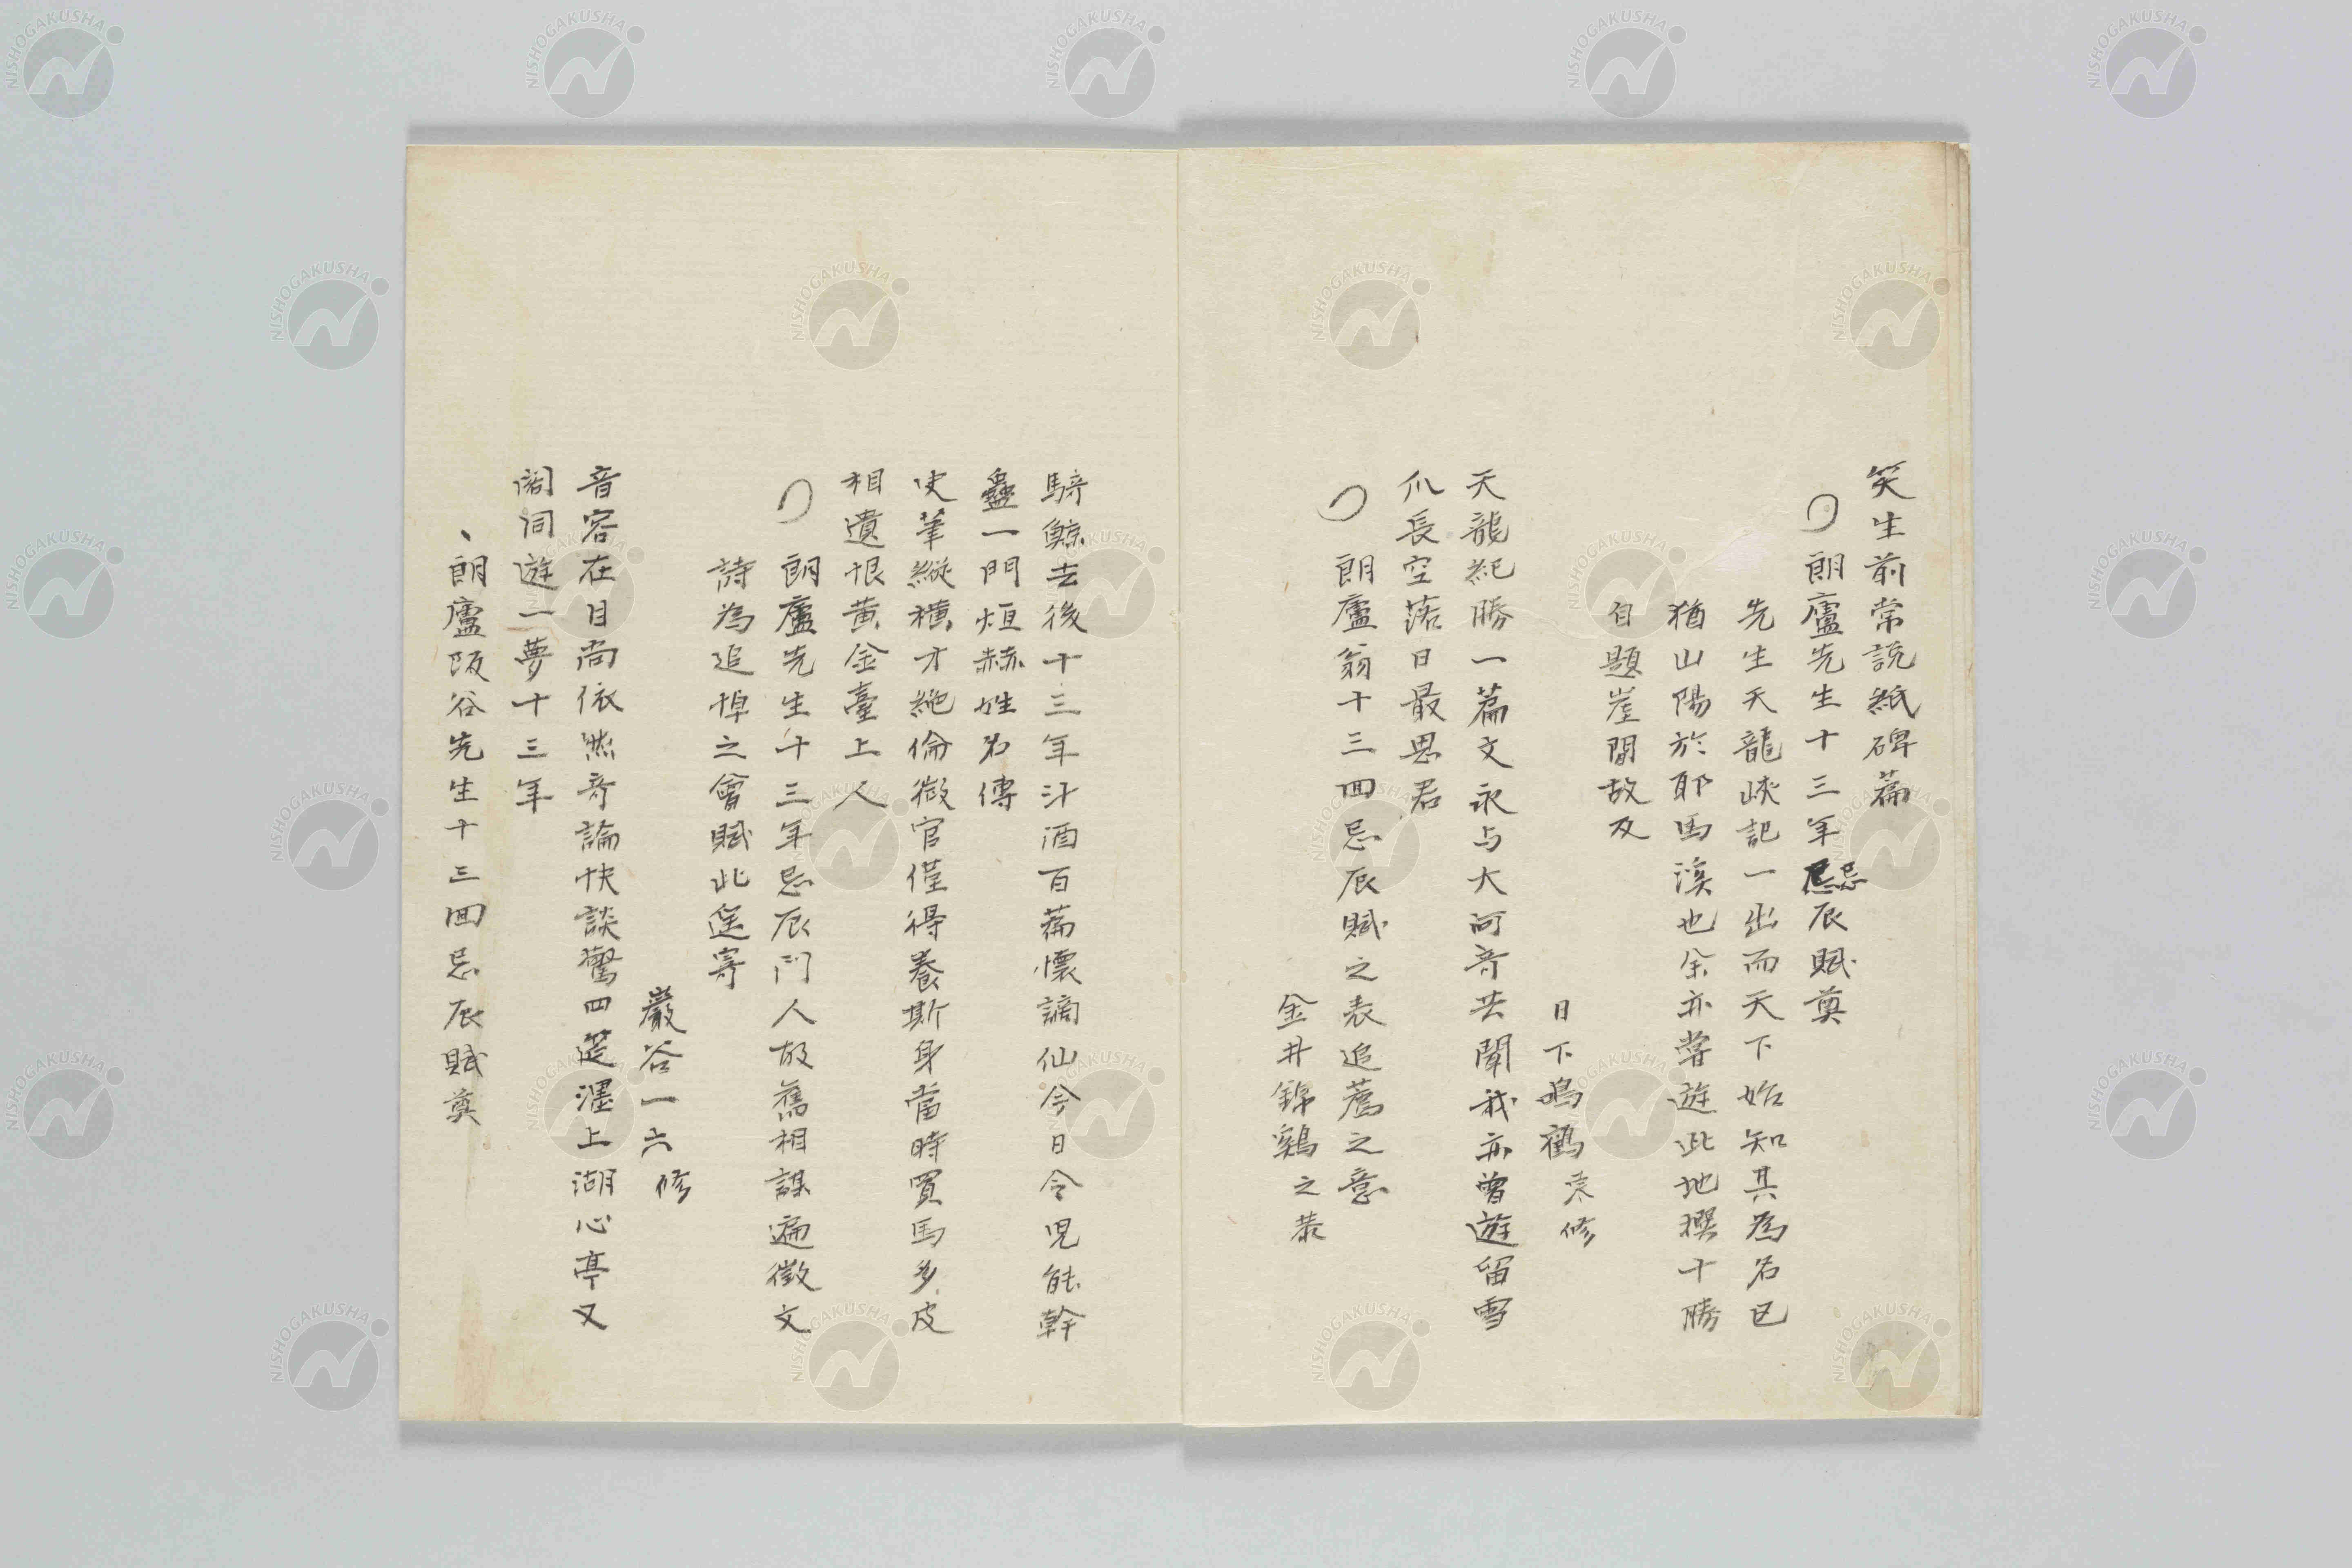 笑生前常説紙碑篇
朗廬先生十三年忌辰賦奠
先生天龍峽記一出而天下始知其為名已
猶山陽於耶馬溪也余亦嘗遊此地撰十勝
自題崖間故及
日下鳴鶴東修
天龍紀勝一篇文永与大河奇共聞我亦曽遊留雪
爪長空落日最思君
朗廬翁十三回忌辰賦之表追薦之意
金井錦鷄之恭
騎鯨去後十三年汁酒百篇懐謫仙今日令児能幹
蠱一門烜赫姓名傳
史筆縦横才絶倫微官僅得養斯身當時買馬多皮
相遺恨黄金臺上人
朗廬先生十三年忌辰門人故舊相謀遍徴文
詩為追悼之會賦此遥寄
巖谷一六修
音容在目尚依然奇論快談驚四筵濹上湖心亭又
閣同遊一夢十三年
朗廬阪谷先生十三回忌辰賦奠
NISHOGAKUSHA